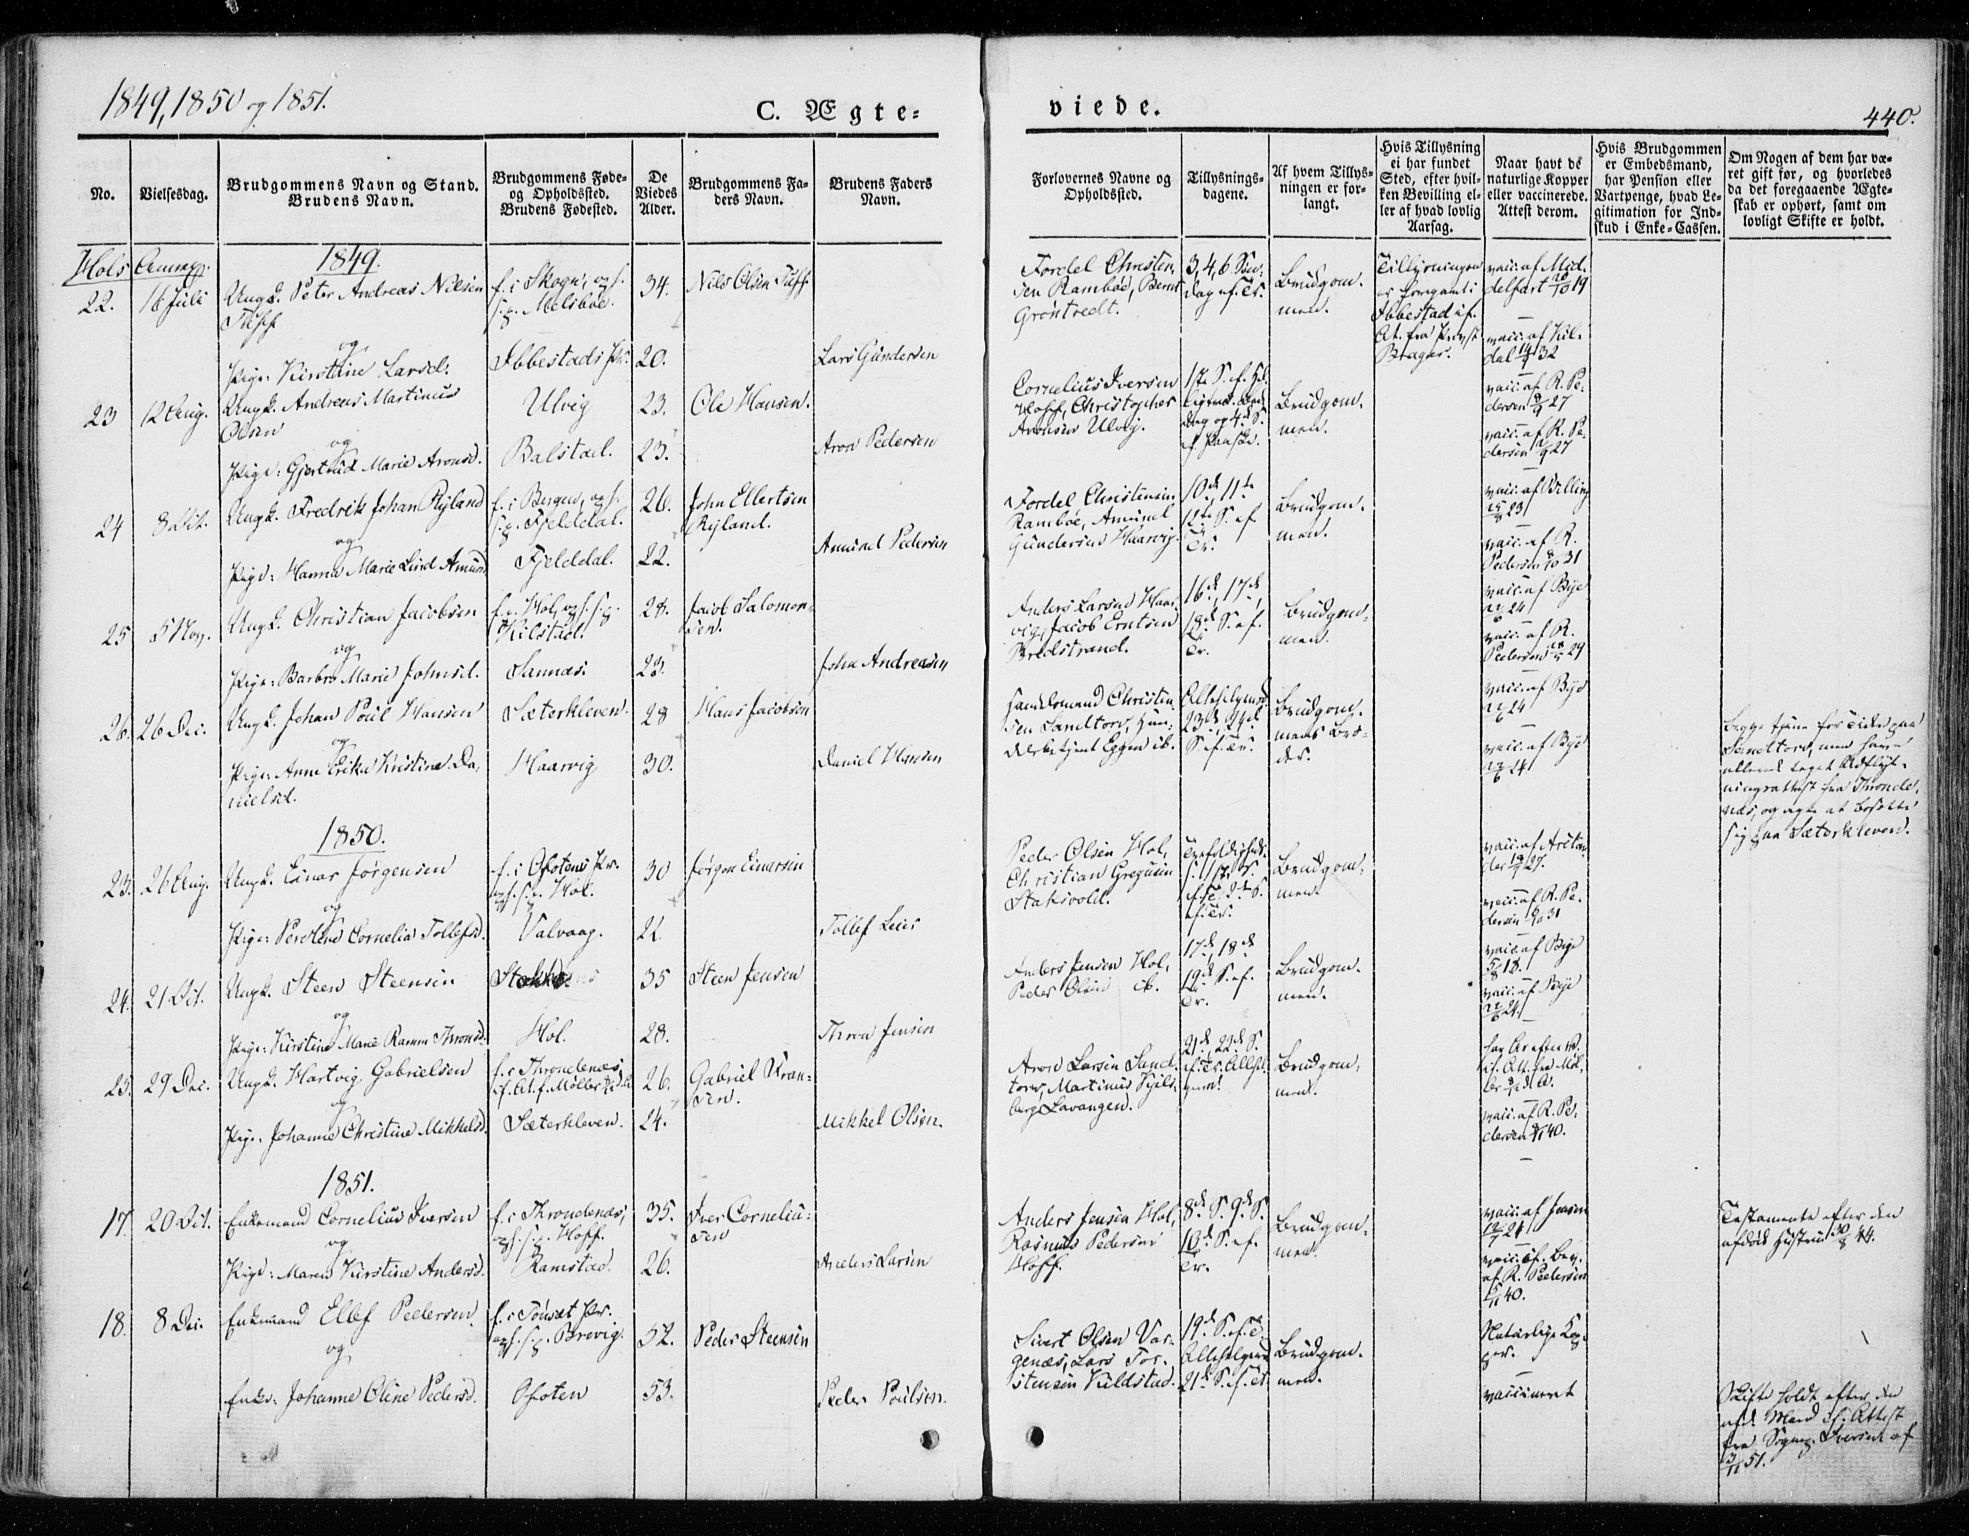 1849, 1850 og 1851.
C. Ægte=
viede.
440.
No.
Vielsesdag.
Brudgommens Navn og Stand.
Brudens Navn.
Brudgommens Føde-
og Opholdssted.
Brudens Fødested.
De
Viedes
Alder.
Brudgommens Fa-
ders Navn.
Brudens Faders
Navn.
Forlovernes Navne og
Opholdssted.
Tillysnings-
dagene.
Af hvem Tillys-
ningen er for-
langt.
Hvis Tillysning
ei har fundet
Sted, efter hvil-
ken Bevilling el-
ler af hvad lovlig
Aarsag.
Naar havt de
naturlige Kopper
eller vaccinerede.
Attest derom.
Hvis Brudgommen
er Embedsmand,
har Pension eller
Vartpenge, hvad Le-
gitimation for Ind-
skud i Enke=Cassen.
Om Nogen af dem har væ-
ret gift før, og hvorledes
da det foregaaende Ægte-
skab er ophørt, samt om
lovligt Skifte er holdt.
Hols
1849.
22.
16 Juli
Ungk. Peter Andreas Nilsen
f. i Skogn, og f.
34.
Nils Olsen
Fordel Christen-
sen Ramböe, Bernt
Gröntvedt.
3, 4, 6 Søn-
dag ef. Tr.
Brudgom-
men.
Ibbestad
vacc. af Mid-
delfart 20/10 19
og
Pige: Kirstine Larsd.
Ibbestads Pr.
20.
Lars Gundersen
dal 14/9 32
23
12 Aug.
Ungk. Andreas Martinus
Olsen
Ulvig
23.
Ole Hansen.
Cornelius Iversen
Hoff, Christopher
Aronsen Ulvig.
Brudgom-
men.
vacc. af R. Pe-
dersen 27
og
Pige: Gjertrud Marie Aronsd.
Balstad.
23.
Aron Pedersen
vacc. af R. Pe-
dersen 27
24
8 Oct.
Ungk. Fredrik Johan Ryland
f. i Bergen, og f.
Fjelddal.
26.
John Ellertsen
Ryland.
Fordel Christensen
Ramböe, Amund
Gundersen Haarvig.
10de, 11te
12te S. ef.
Tr.
Brudgom-
men.
vacc. af Billing
og
Pige: Hanna Marie Lind Amunds
Fjelddal.
22.
Amund Pedersen
vacc. af R.
Pedersen 31
25
5 Nov.
Ungk. Christian Jacobsen
f. i Hol, og f.
Kilstad.
28.
Jacob Salomon-
sen.
Anders Larsen Haar-
vig, Jacob Erntsen
Bredstrand.
16de, 17de,
18de S. ef.
Tr.
Brudgom-
men.
vacc. af Bye
24
og
Pige: Barbro Marie Johnsd.
Sannæs
23.
John Andreasen
vacc. af R.
Pedersen 29
26.
26 Dec.
Ungk. Johan Poul Hansen
Sæterkleven.
28
Hans Jacobsen
Handelsmand Christen-
sen Sandtorv,
Eggen ib.
Allehelgensd.
23de, 24de
S. ef. Tr.
Brudgom-
mens Bro-
der.
vacc. af Bye
22/6 24
og
Pige: Anne Erika Kirstine Da-
nielsd.
Haarvig
30.
Daniel Hansen
vacc. af Bye
22/6 24
Begge tjene for Tiden paa
Sandtorv, men have
allerede taget Udflyt-
ningsattest fra Thronde-
næs, og agte at bosætte
sig paa Sæterkleven.
1850.
23.
26 Aug.
Ungk. Einar Jörgensen
f. i Ofotens Pr.
og f. Hol.
30
Jörgen Einersen
Peder Olsen Hol,
Christian Gregusen
Stakvold.
Trefoldigheds
S. 1ste S.
ef. Tr. 2den S.
ef. Tr.
Brudgom-
men.
27.
og
Pige: Perdine Cornelia Tollefsd.
Valvaag.
22
Tollef Leies
vacc. af R. Pe-
dersen 31
24.
21 Oct.
Ungk. Steen Steensen
35
Steen Jensen
Anders Jensen Hol,
Peder Olsen ib.
17de, 18de
19de S. ef.
Tr.
Brudgom-
men.
vacc. af Bye
18.
og
Pige: Kirstine Marie Ramm Thronsd.
Hol.
28.
Thron Jensen
vacc. af Bye
22/6 24.
25.
29 Dec.
Ungk. Hartvig Gabrielsen
f. i Throndenæs,
26.
Gabriel Kran-
sen.
Aron Larsen Sand-
torv, Martinus Kjils-
berg Lavangen.
21de, 22de S.
ef. Tr. Allehel-
gensd.
Brudgom-
men.
og
Pige: Johanne Christine Mikkelsd.
Sæterkleven.
24.
Mikkel Olsen.
vacc. af R. Pe-
dersen 40.
1851.
17.
20 Oct.
Enkemand Cornelius Iversen
f. i Throndenæs,
og f. Hoff.
35.
Iver Corneliu-
sen
Anders Jensen Hol,
Rasmus Pedersen
Hoff.
8de S. 9de S.
10de S. ef.
Tr.
Brudgom-
men.
vacc. af Jensen
Testamente efter den
afdøde Hustru 44.
og
Pige: Maren Kirstine Andersd.
Ramstad.
26.
Anders Larsen
af R. Pedersen
40.
18.
8 Dec.
Enkemand Ellef Pedersen
f. i Tönset Pr.
og f. Brevig.
52.
Peder Steensen
Sivert Olsen Var-
genæs, Lars Tor-
stensen Kildstad.
19de S. ef. Tr.
Allehelgensd.
21de S. ef. Tr.
Brudgom-
men.
Naturlige Kop-
per.
og
Enke: Johanne Oline Pedersd.
Ofoten
53.
Peder Poulsen.
vaccineret
Skifte holdt efter den
afd. Mand if. Attest
fra Sogнep. Iversen af
3/11 51.